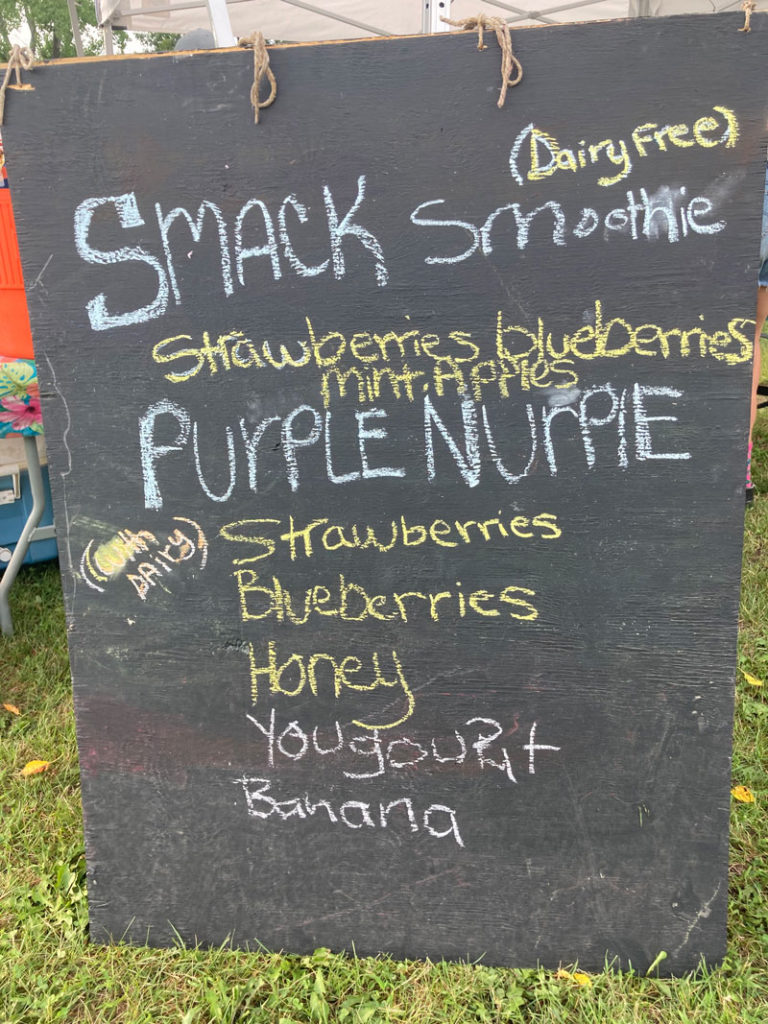 (Dairy Free)
SMACK Smoothie
Strawberries blueberries
mint. Apples
PURPLE NURPLE
(with DAiry)
Strawberries
Blueberries
Honey
Yougourt
Banana